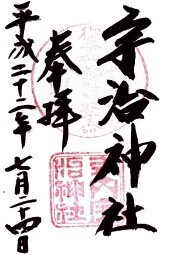 宇治神社
奉拝
平成二十二年七月二十四日